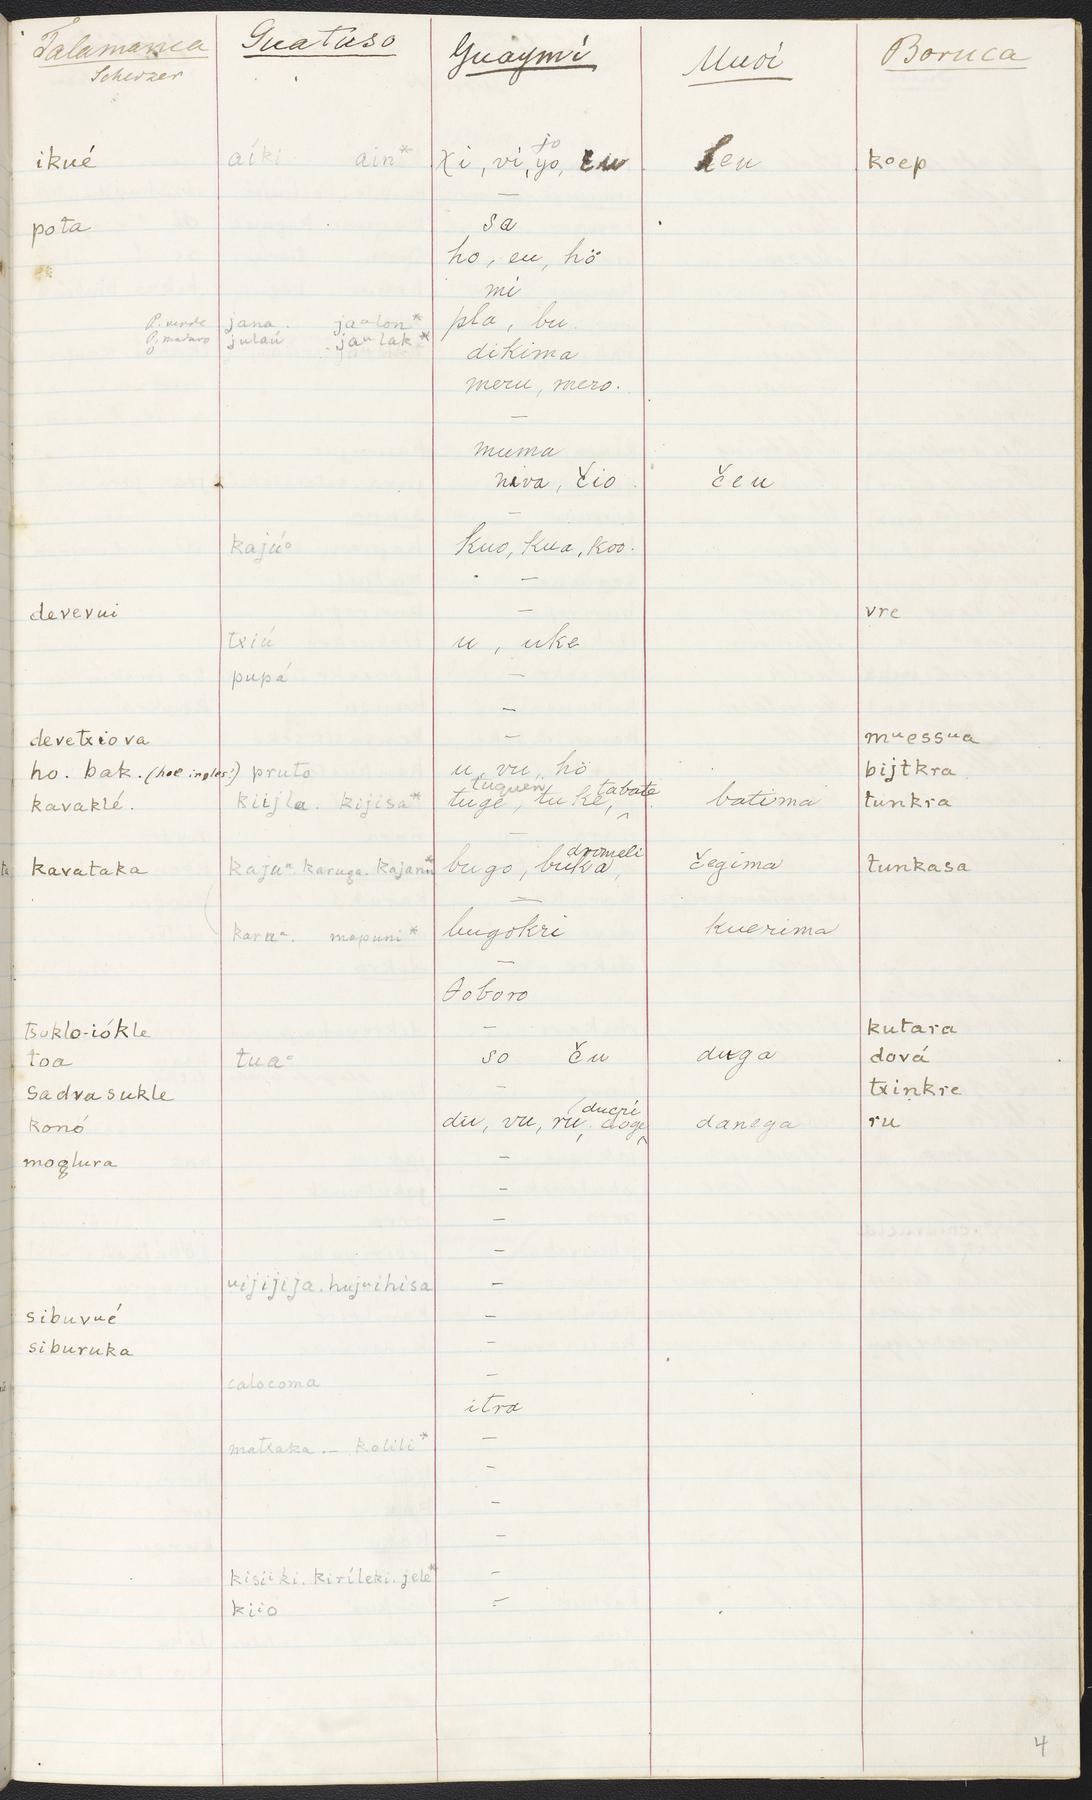 Talamanca Guatuso Guaymí Muoi Boruca
Scherzer
jo
ikué aíki ain* xi, vi, yo, eu leu koep
—
pota sa
ho, eu, hö
mi
P. verde jana. jaᵘlon* pla, bu.
P. maduro julaú jaᵘlak* dikima
meru, mero.
—
muma
niva, čio čeu
—
kajúᵒ kuo, kua, koo.
—
devevui — vre
txiú u, uke
pupá —
—
devetxiova — mᵘessᵘa
ho. bak. (hoe ingles?) pruto u, vu, hö bijtkra
tuquen tabate
kavaklé. kiijla. kijisa* tuge, tuke, batima tunkra
—
dromeli
kavataka kajuᵃ. karuga. kajann* bugo, buka, čegima tunkasa
—
karaᵃ. mapuni* bugokri kuerima
—
toboro
tsuklo-iókle — kutara
toa tuaᵃ so ču duga dová
sadvasukle — txinkre
ducri
konó du, vu, ru, doge danega ru
moglura —
—
—
—
uijijija. hujuihisa —
sibuvué —
siburuka —
calocoma —
itra
matxaka. — kolili* —
—
—
—
kisiiki. kiríleki. jele* —
kiio —
4